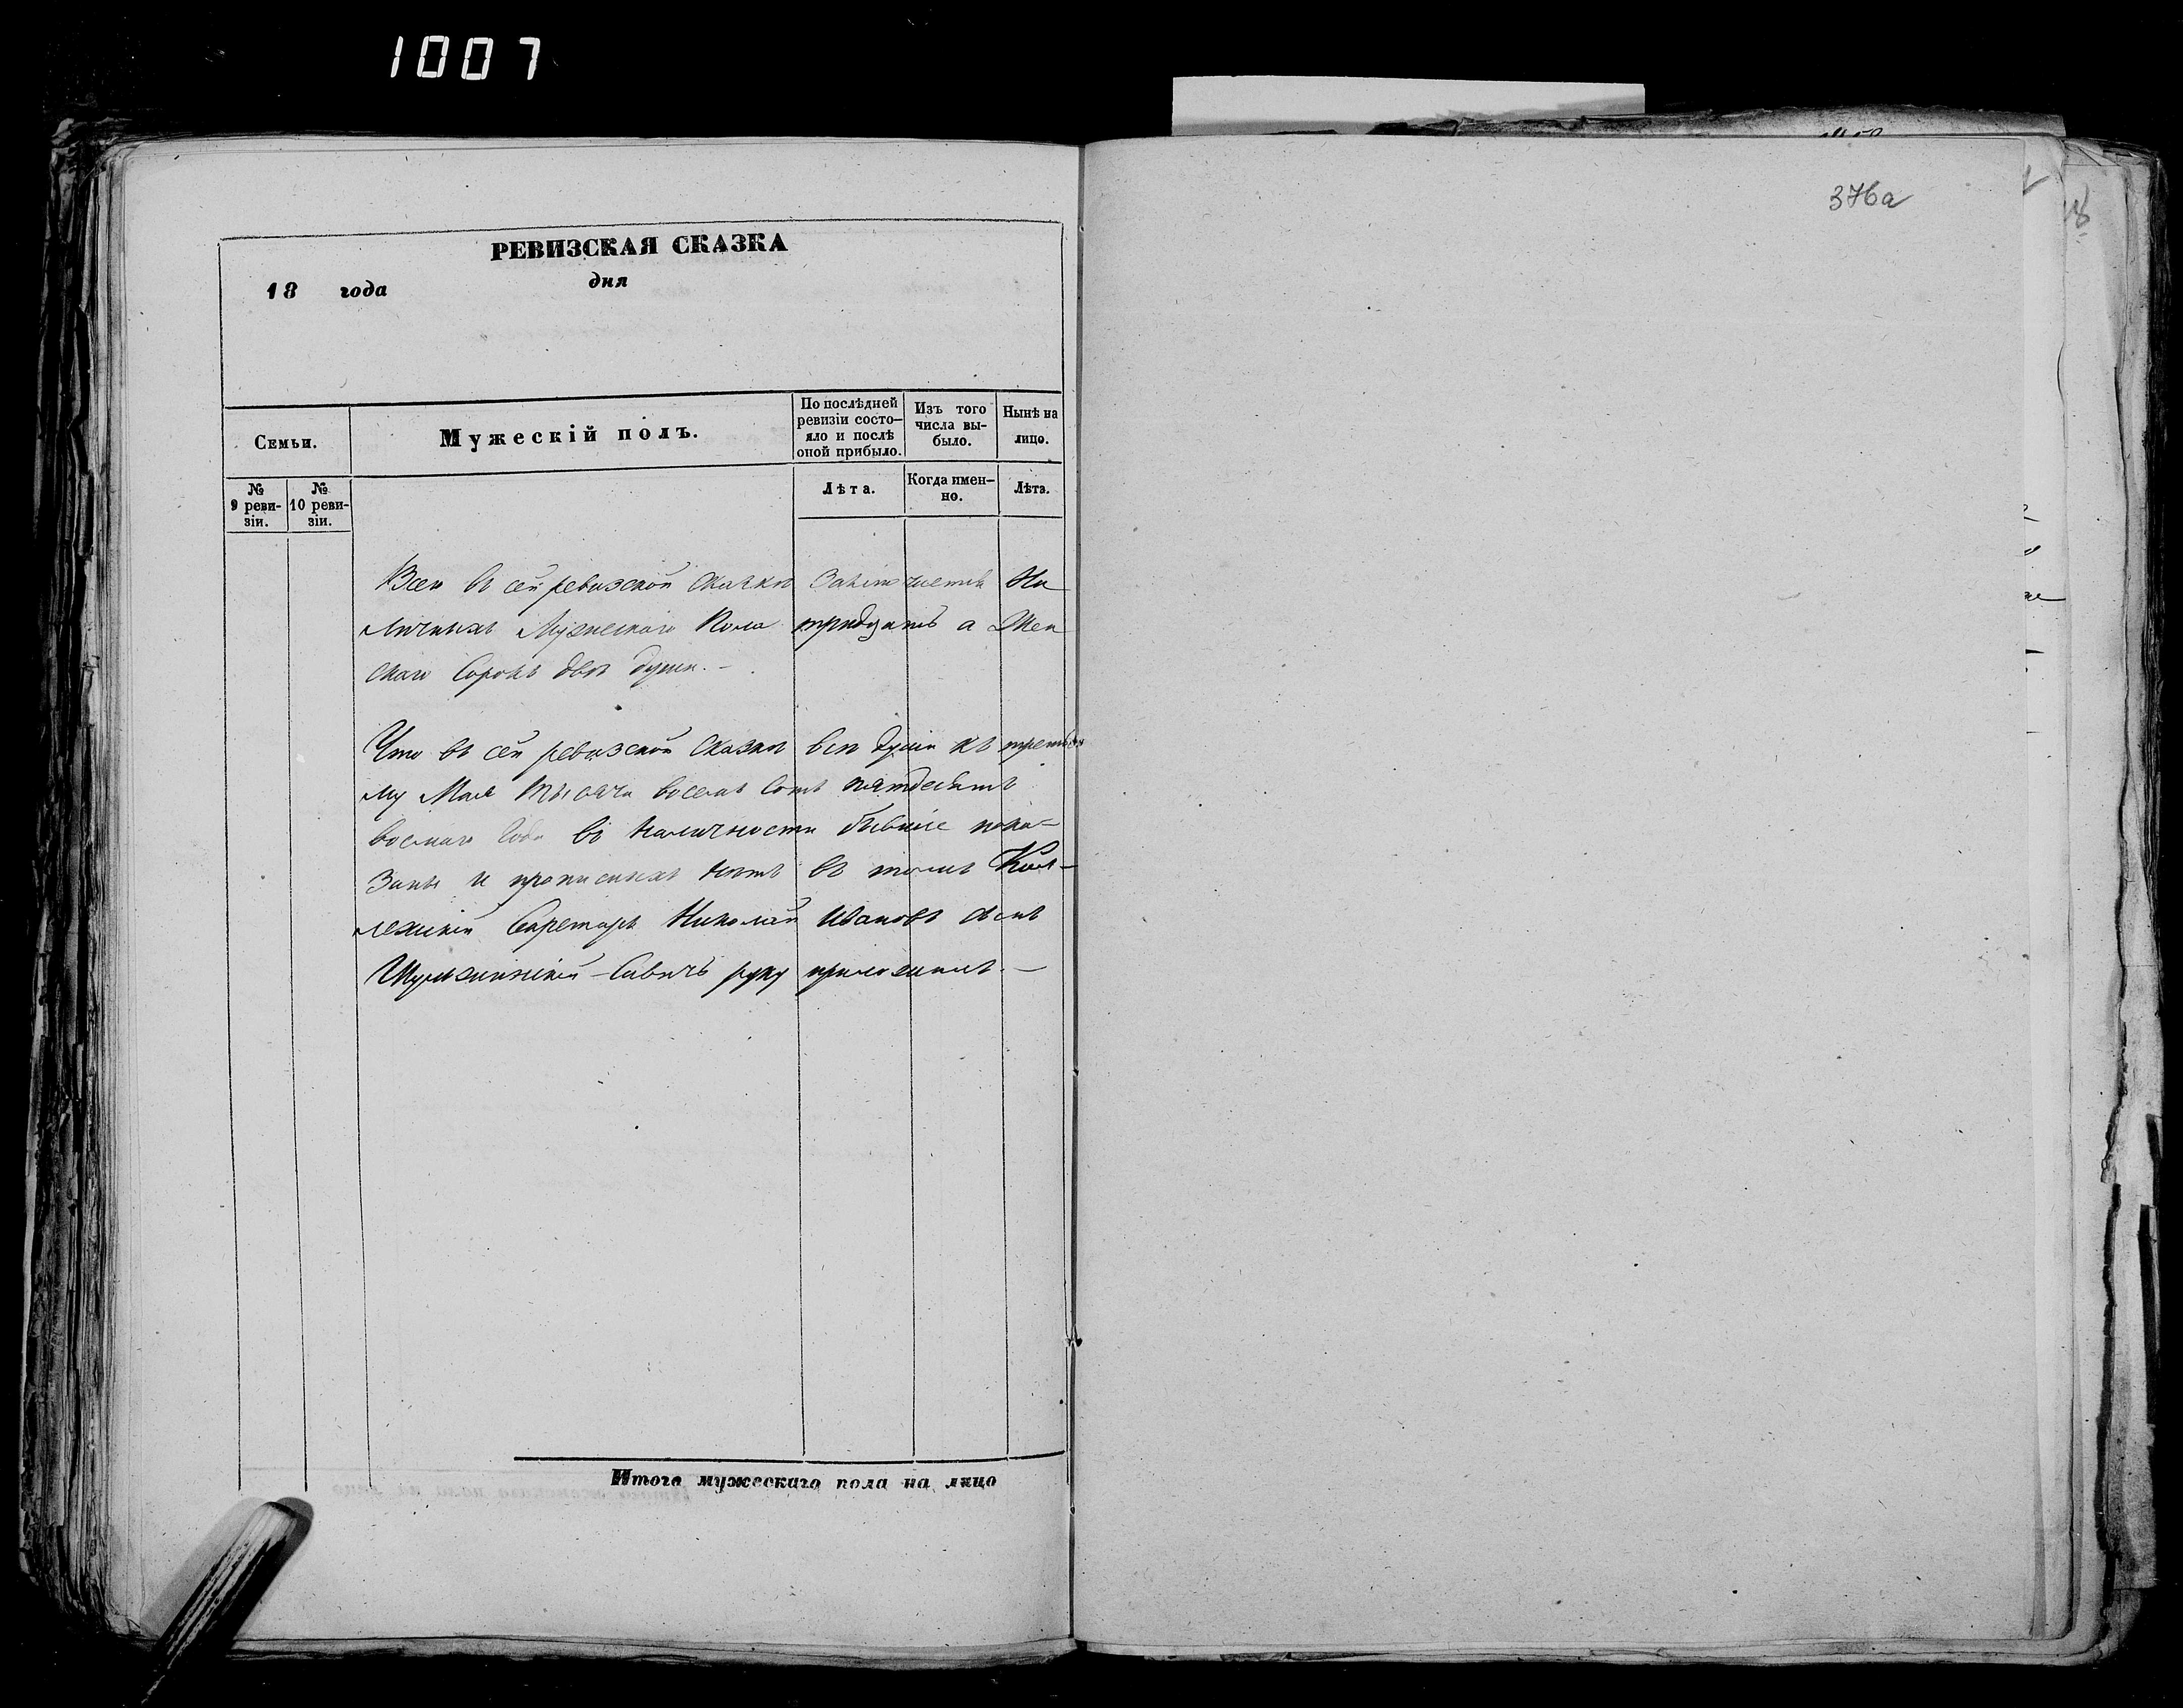 1007
376а
РЕВИЗСКАЯ СКАЗКА
18 года дня
Семьи.
Мужескій полъ.
По послѣдней ревизіи состо-яло и послѣ оной прибыло.
Изъ того числа вы-было.
Нынѣ на лицо.
№ 9 реви-зіи.
№ 10 реви-зіи.
Лѣта.
Когда имен-но.
Лѣта.
Всей въ сей ревизской сказкѣ Заключается На
личныхъ Мужескаго Пола тридцать а Жен
скаго Сорокъ двѣ души. –
Что въ сей ревизской Сказкѣ всѣ души къ третьему
му Мая тысяча восемь Сотъ пятдесятъ
восмаго Года въ наличности бывшіе пока-
заны и прописныхъ нѣтъ въ томъ Кол-
лежскій Секретарь Николай Ивановъ сынъ
Савичъ руку приложилъ. –
Итого мужескаго пола на лицо